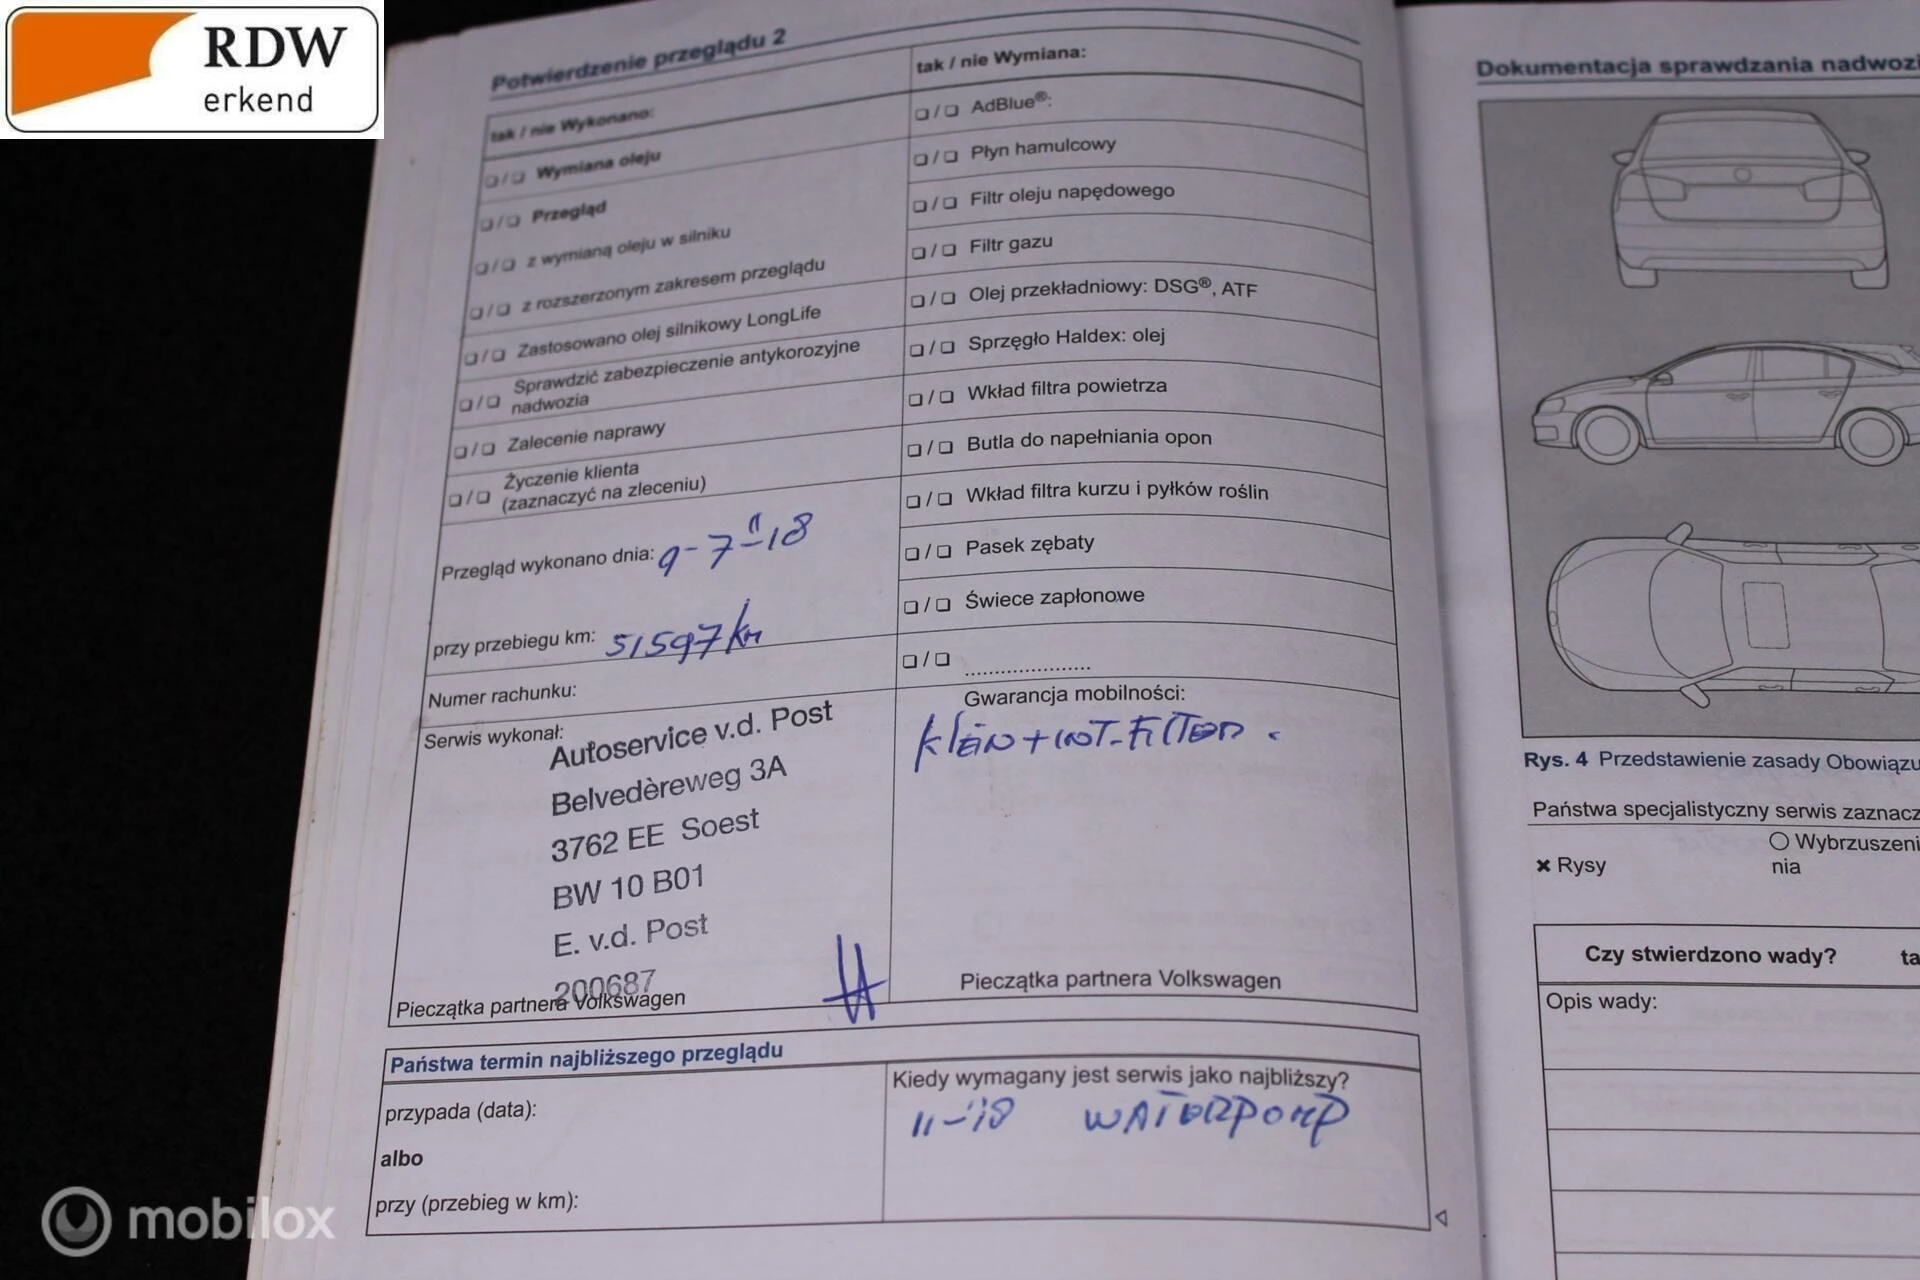 RDW
erkend
Potwierdzenie przeglądu 2
tak / nie Wykonano:
❏ / ❏ Wymiana oleju
❏ / ❏ Przegląd
❏ / ❏ z wymianą oleju w silniku
❏ / ❏ z rozszerzonym zakresem przeglądu
❏ / ❏ Zastosowano olej silnikowy LongLife
❏ / ❏ Sprawdzić zabezpieczenie antykorozyjne
nadwozia
❏ / ❏ Zalecenie naprawy
❏ / ❏ Życzenie klienta
(zaznaczyć na zleceniu)
Przegląd wykonano dnia: 9-7-18
przy przebiegu km: 51597 km
Numer rachunku:
Serwis wykonał:
Autoservice v.d. Post
Belvedèreweg 3A
3762 EE Soest
BW 10 B01
E. v.d. Post
200687
Pieczątka partnera Volkswagen
tak / nie Wymiana:
❏ / ❏ AdBlue®:
❏ / ❏ Płyn hamulcowy
❏ / ❏ Filtr oleju napędowego
❏ / ❏ Filtr gazu
❏ / ❏ Olej przekładniowy: DSG®, ATF
❏ / ❏ Sprzęgło Haldex: olej
❏ / ❏ Wkład filtra powietrza
❏ / ❏ Butla do napełniania opon
❏ / ❏ Wkład filtra kurzu i pyłków roślin
❏ / ❏ Pasek zębaty
❏ / ❏ Świece zapłonowe
❏ / ❏ ......................
Gwarancja mobilności:
Klein + int-Filter.
Pieczątka partnera Volkswagen
Państwa termin najbliższego przeglądu
przypada (data):
albo
przy (przebieg w km):
Kiedy wymagany jest serwis jako najbliższy?
11-'18 WATERPOMP
Dokumentacja sprawdzania nadwozi
Rys. 4 Przedstawienie zasady Obowiązu
Państwa specjalistyczny serwis zaznacz
✖ Rysy
○ Wybrzuszeni
nia
Czy stwierdzono wady? ta
Opis wady:
mobilox